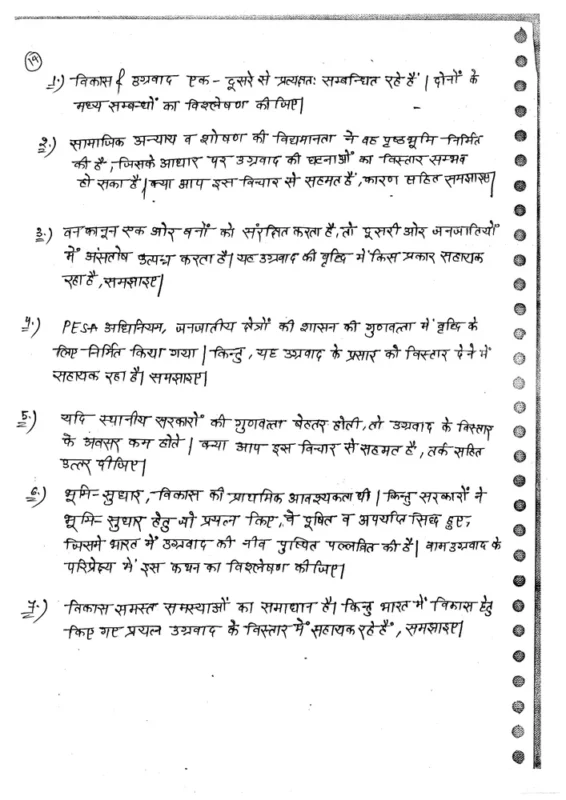 19
1.) विकास व उग्रवाद एक - दूसरे से प्रत्यक्षतः सम्बन्धित रहे हैं | दोनों के
मध्य सम्बन्धों का विश्लेषण कीजिए|
2.) सामाजिक अन्याय व शोषण की विद्यमानता ने वह पृष्ठभूमि निर्मित
की है, जिसके आधार पर उग्रवाद की घटनाओं का विस्तार सम्भव
हो सका है| क्या आप इस विचार से सहमत हैं, कारण सहित समझाइए|
3.) वन कानून एक ओर वनों को संरक्षित करता है, तो दूसरी ओर जनजातियों
में असंतोष उत्पन्न करता है| यह उग्रवाद की वृद्धि में किस प्रकार सहायक
रहा है, समझाइए|
4.) PESA अधिनियम, जनजातीय क्षेत्रों की शासन की गुणवत्ता में वृद्धि के
लिए निर्मित किया गया | किन्तु, यह उग्रवाद के प्रसार को विस्तार देने में
सहायक रहा है| समझाइए|
5.) यदि स्थानीय सरकारों की गुणवत्ता बेहतर होती, तो उग्रवाद के विस्तार
के अवसर कम होते | क्या आप इस विचार से सहमत है, तर्क सहित
उत्तर दीजिए|
6.) भूमि-सुधार, विकास की प्राथमिक आवश्यकता थी | किन्तु सरकारों ने
भूमि-सुधार हेतु जो प्रयत्न किए, वे दूषित व अपर्याप्त सिद्ध हुए,
जिसने भारत में उग्रवाद की नींव पुष्पित पल्लवित की है| वाम उग्रवाद के
परिप्रेक्ष्य में इस कथन का विश्लेषण कीजिए|
7.) विकास समस्त समस्याओं का समाधान है| किन्तु भारत में विकास हेतु
किए गए प्रयत्न उग्रवाद के विस्तार में सहायक रहे हैं, समझाइए|